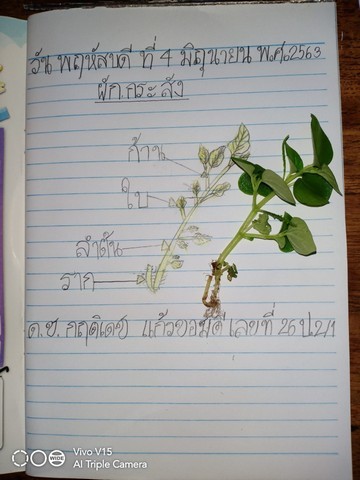 วัน พฤหัสบดี ที่ 4 มิถุนายน พ.ศ.2563
ผักกระสัง
ก้าน
ใบ
ลำต้น
ราก
ด.ช. กฤติเดช แก้วขอมดี เลขที่ 26 ป.2/1
Vivo V15
WIDE
AI Triple Camera